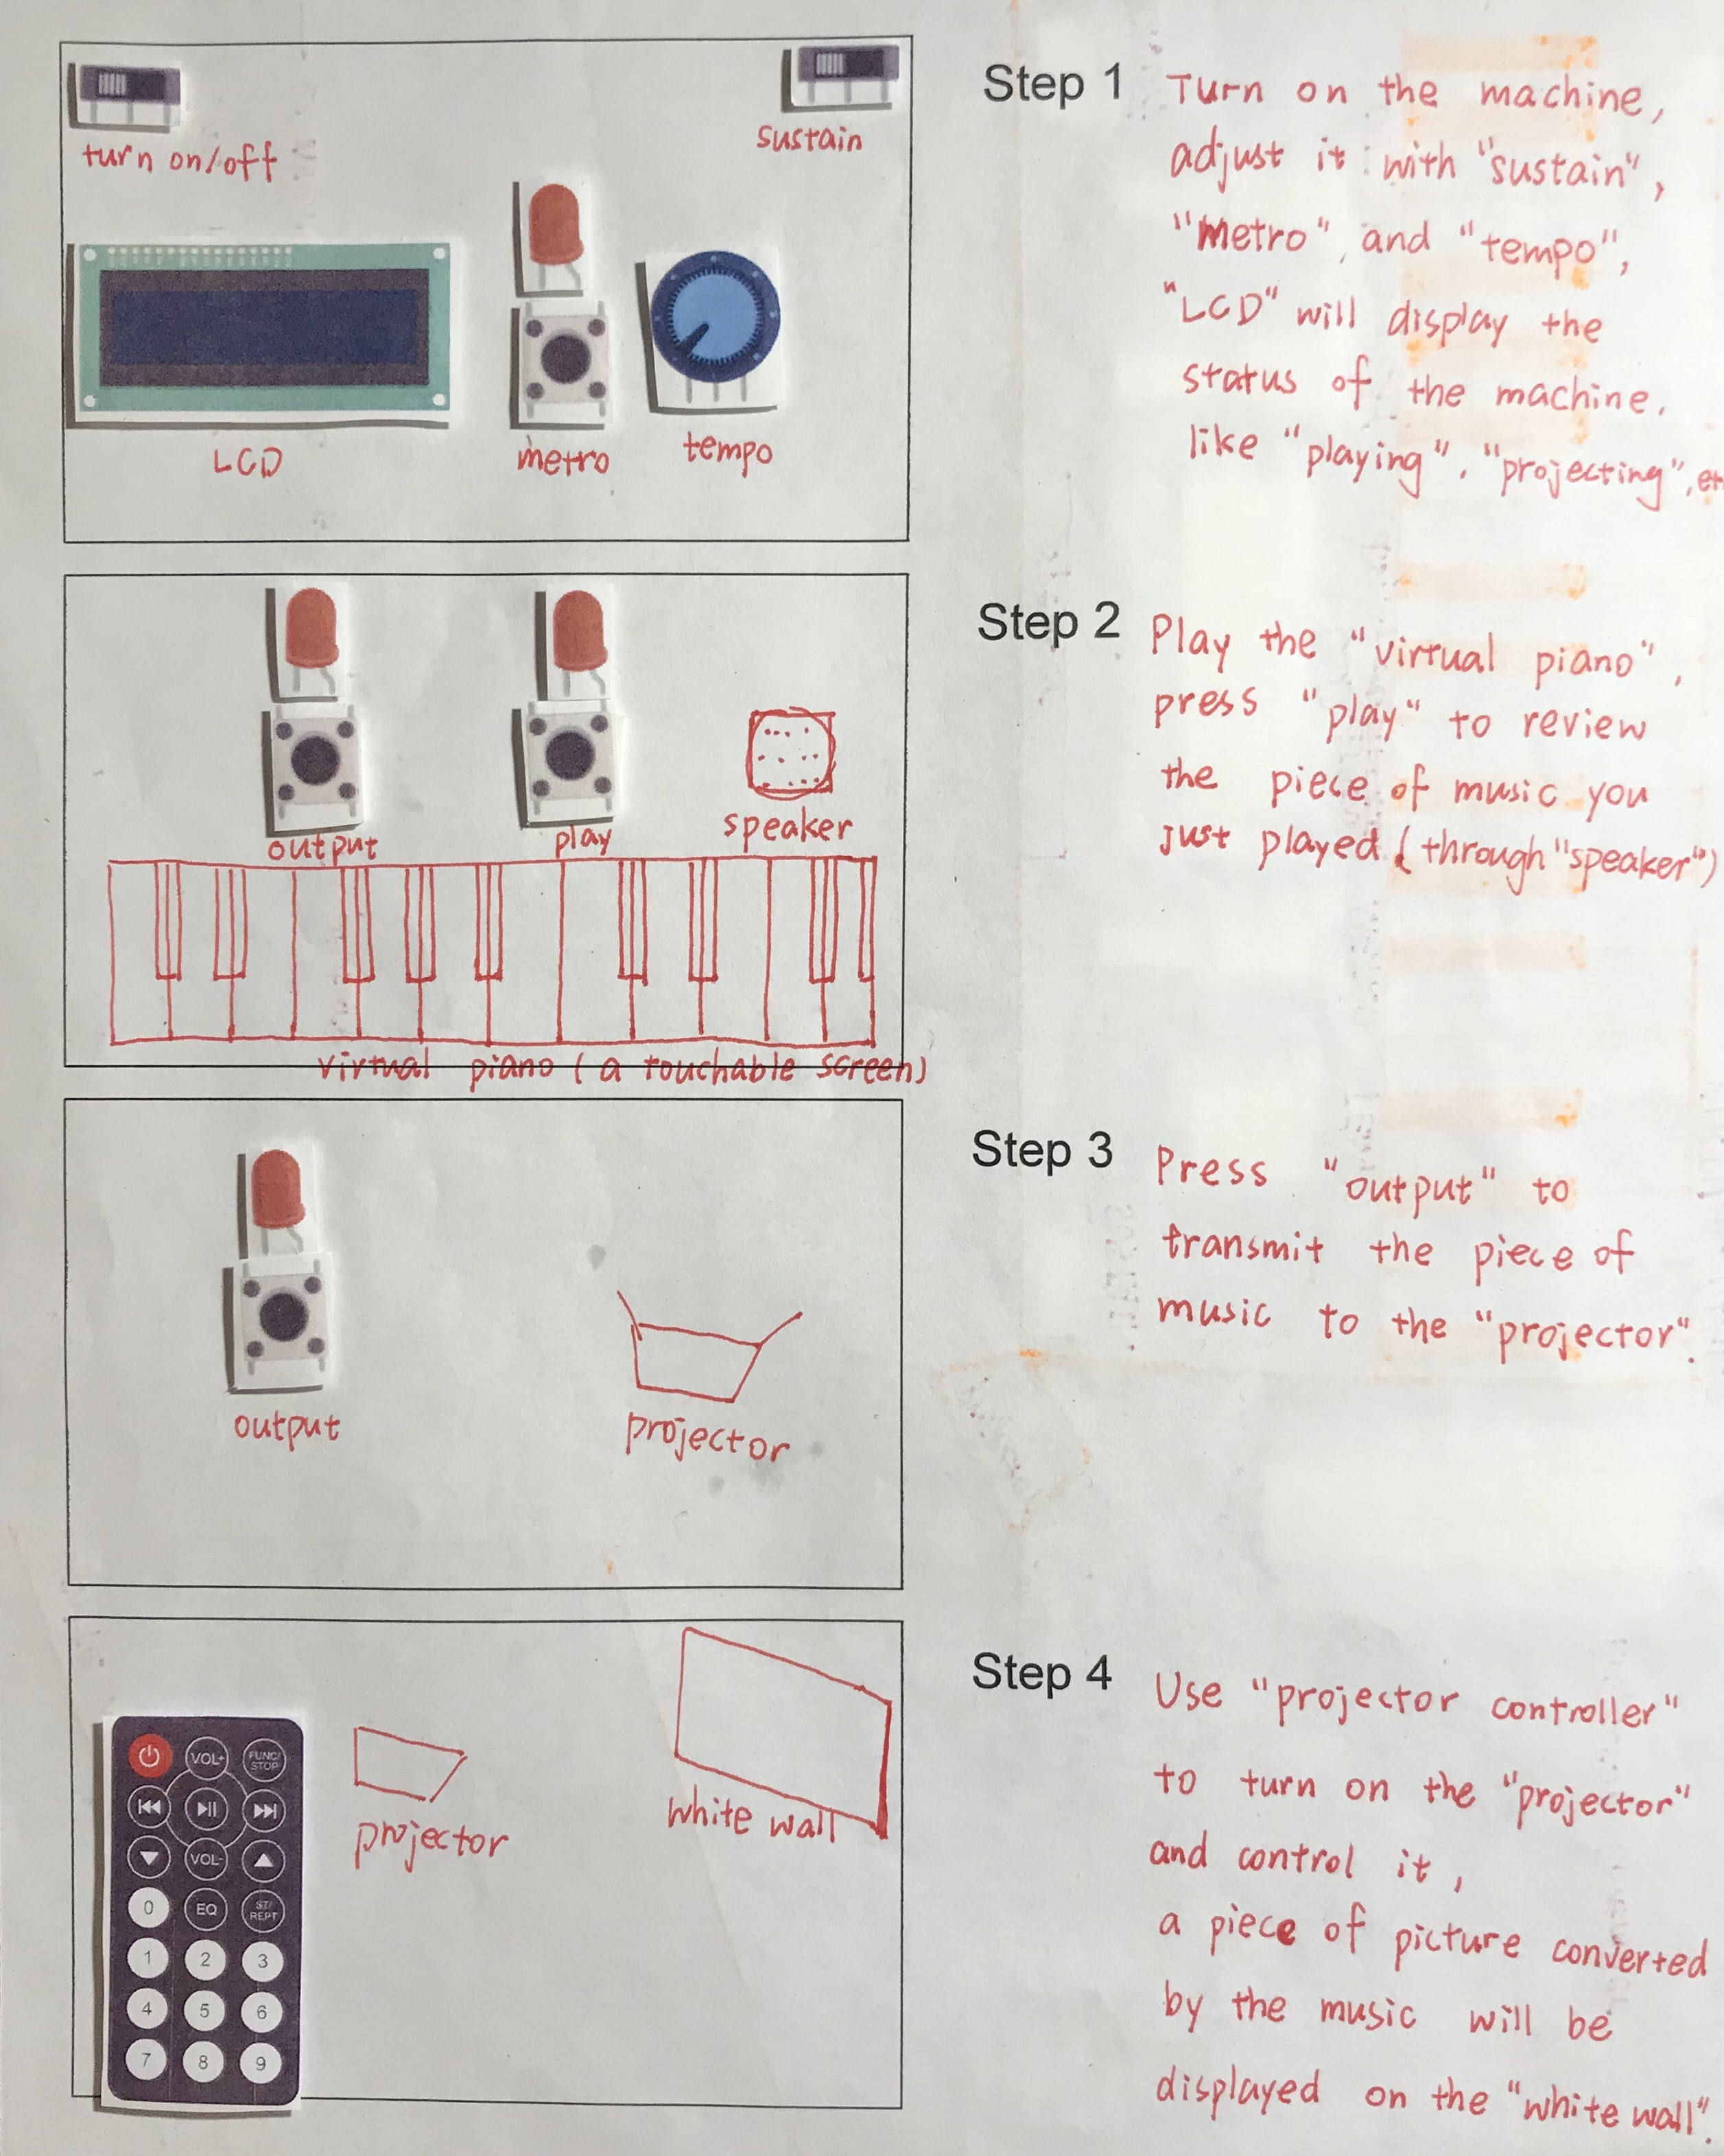 turn on/off
sustain
LCD
metro
tempo
Step 1
Turn on the machine,
adjust it with "sustain",
"metro", and "tempo",
"LCD" will display the
status of the machine,
like "playing", "projecting",
output
play
speaker
virtual piano (a touchable screen)
Step 2
Play the "virtual piano",
press "play" to review
the piece of music you
just played (through "speaker")
output
projector
Step 3
Press "output" to
transmit the piece of
music to the "projector".
VOL+
FUNC/
STOP
VOL-
0
EQ
ST/
REPT
1 2 3
4 5 6
7 8 9
projector
white wall
Step 4
Use "projector controller"
to turn on the "projector"
and control it,
a piece of picture converted
by the music will be
displayed on the "white wall".